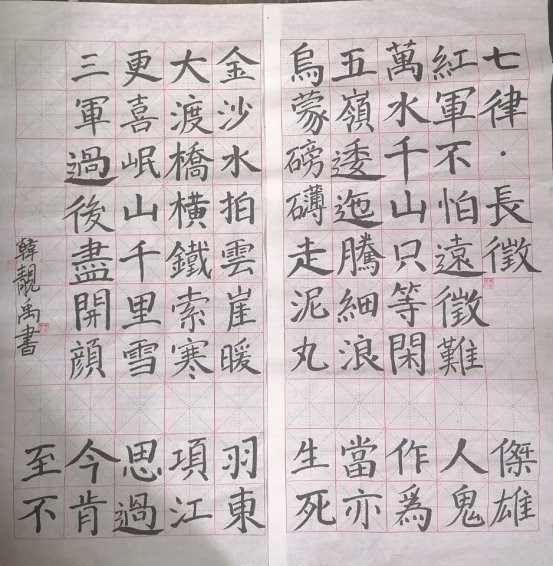 七律·長徵
紅軍不怕遠徵難
萬水千山只等閑
五嶺逶迤騰細浪
烏蒙磅礴走泥丸
金沙水拍雲崖暖
大渡橋橫鐵索寒
更喜岷山千里雪
三軍過後盡開顏
韓靚禹書
生當作人傑
死亦爲鬼雄
至今思項羽
不肯過江東